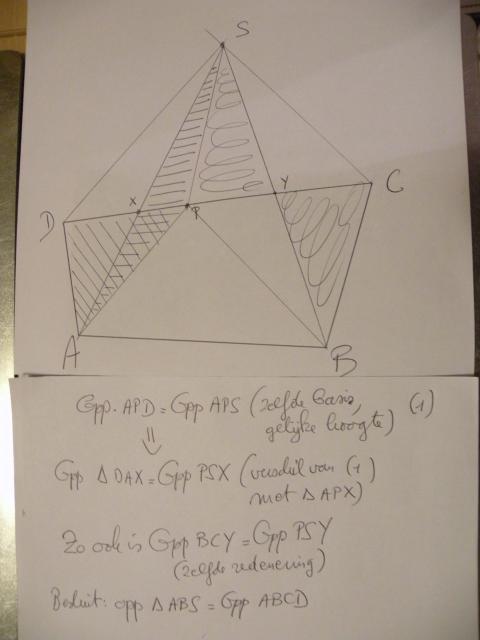 S
D
X
P
Y
C
A
B
Opp. APD = Opp APS (zelfde basis,
gelijke hoogte) (1)
⇓
Opp Δ DAX = Opp PSX (verschil van (1)
met Δ APX)
Zo ook is Opp BCY = Opp PSY
(zelfde redenering)
Besluit: opp Δ ABS = Opp ABCD